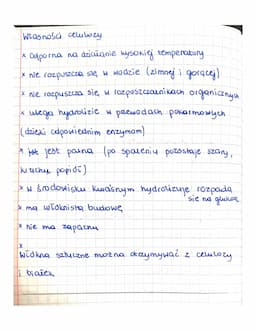 Własności celulozy
x odporna na działanie wysokiej temperatury
x nie rozpuszcza się w wodzie (zimnej i gorącej)
x nie rozpuszcza się w rozpuszczalnikach organicznych
x ulega hydrolizie w przewodach pokarmowych
(dzięki odpowiednim enzymom)
x jest palna (po spaleniu pozostaje szary,
kruchy popiół)
x w środowisku kwaśnym hydrolizuje rozpada
się na glukozę
x ma włóknistą budowę
x nie ma zapachu
x
Włókna sztuczne można otrzymywać z celulozy
i białek